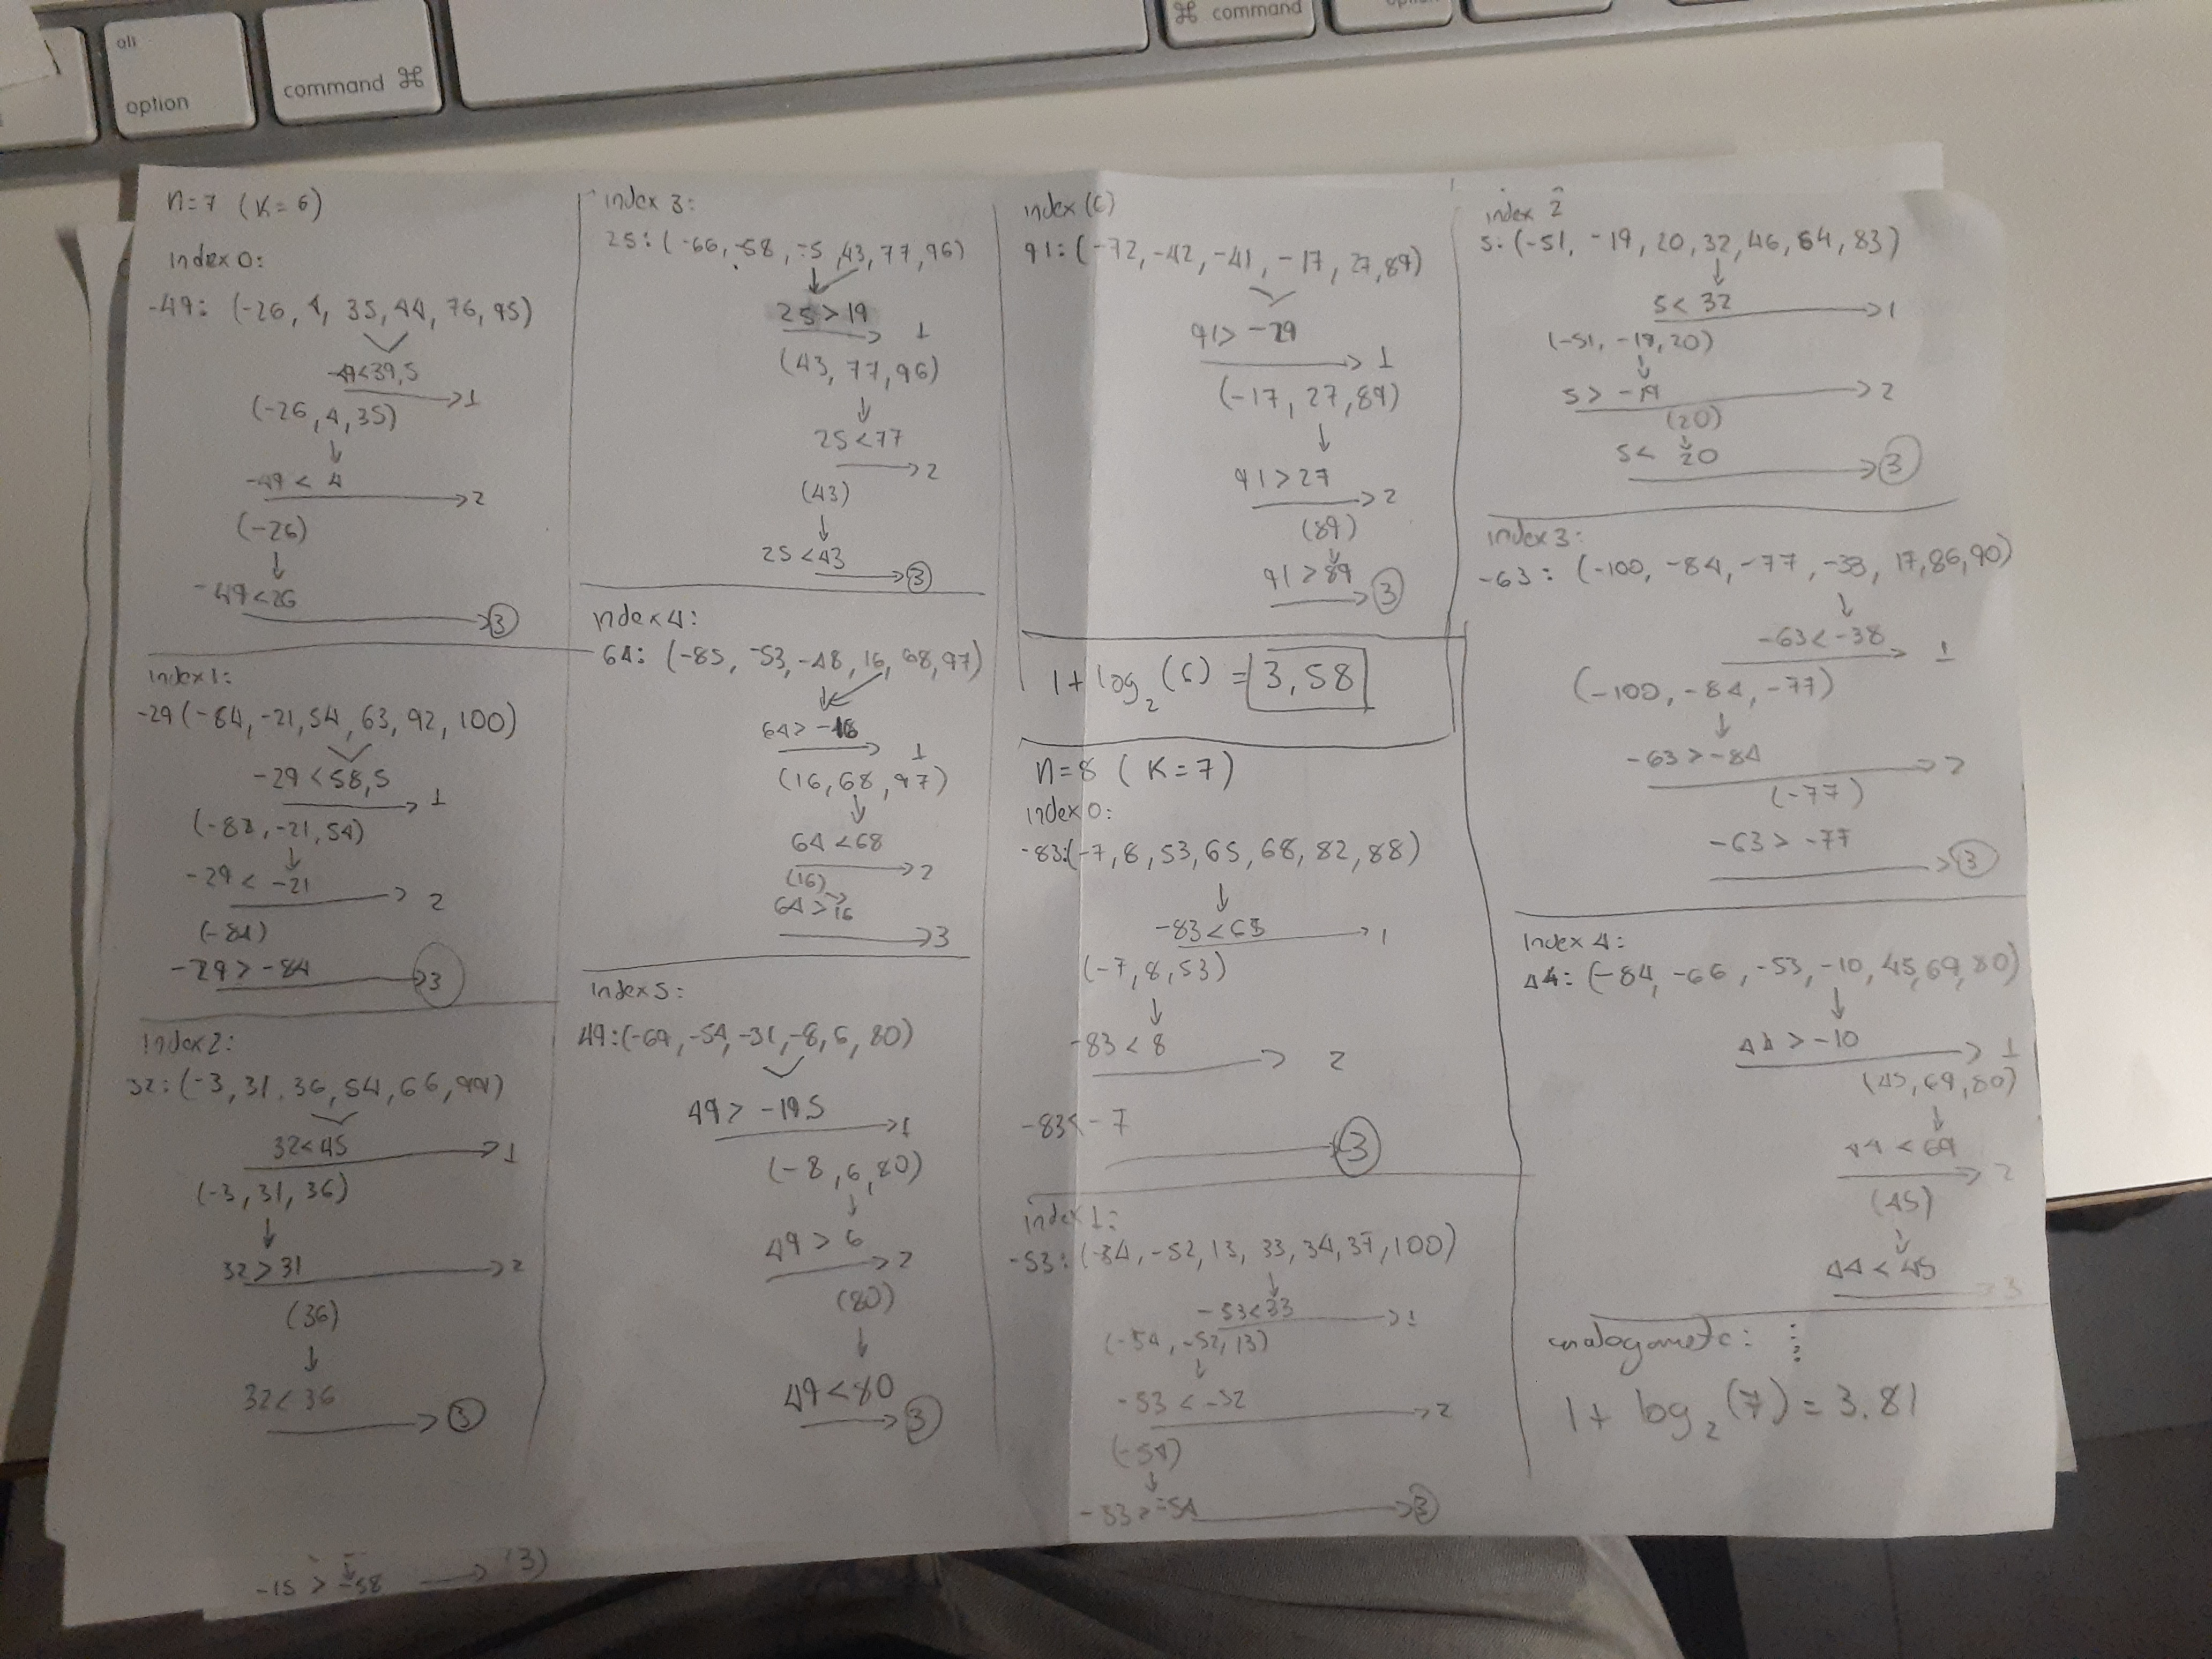 alt
option
command ⌘
⌘ command
n=7 (K=6)
index 0:
-49: (-26, 4, 35, 44, 76, 95)
-49<39,5 → 1
(-26, 4, 35)
↓
-49 < 4 → 2
(-26)
↓
-49<26 → 3
index 1:
-29 (-84, -21, 54, 63, 92, 100)
-29 < 58,5 → 1
(-84, -21, 54)
↓
-29 < -21 → 2
(-84)
-29 > -84 → 3
index 2:
32: (-3, 31, 36, 54, 66, 99)
32<45 → 1
(-3, 31, 36)
↓
32 > 31 → 2
(36)
↓
32 < 36 → 3
-15 > -58 → (3)
index 3:
25: (-66, -58, -5, 43, 77, 96)
25 > 19 → 1
(43, 77, 96)
↓
25 < 77 → 2
(43)
↓
25 < 43 → 3
index 4:
64: (-85, -53, -48, 16, 68, 97)
64 > -16 → 1
(16, 68, 97)
↓
64 < 68 → 2
(16)
64 > 16 → 3
index 5:
49: (-69, -54, -31, -8, 6, 80)
49 > -19,5 → 1
(-8, 6, 80)
↓
49 > 6 → 2
(80)
↓
49 < 80 → 3
index (6)
91: (-72, -42, -41, -17, 27, 89)
91 > -29 → 1
(-17, 27, 89)
↓
91 > 27 → 2
(89)
↓
91 > 89 → 3
1 + log₂ (6) = 3,58
n=8 (K=7)
index 0:
-83: (-7, 8, 53, 65, 68, 82, 88)
↓
-83 < 65 → 1
(-7, 8, 53)
↓
-83 < 8 → 2
-83 < -7 → 3
index 1:
-53: (-54, -52, 13, 33, 34, 37, 100)
↓
-53 < 33 → 1
(-54, -52, 13)
↓
-53 < -52 → 2
(-54)
↓
-53 > -54 → 3
index 2
5: (-51, -19, 20, 32, 46, 64, 83)
↓
5 < 32 → 1
(-51, -19, 20)
↓
5 > -19 → 2
(20)
↓
5 < 20 → 3
index 3:
-63: (-100, -84, -77, -38, 17, 86, 90)
↓
-63 < -38 → 1
(-100, -84, -77)
↓
-63 > -84 → 2
(-77)
-63 > -77 → 3
index 4:
44: (-84, -66, -53, -10, 45, 69, 80)
↓
44 > -10 → 1
(45, 69, 80)
↓
44 < 69 → 2
(45)
↓
44 < 45 → 3
1 + log₂ (7) = 3.81